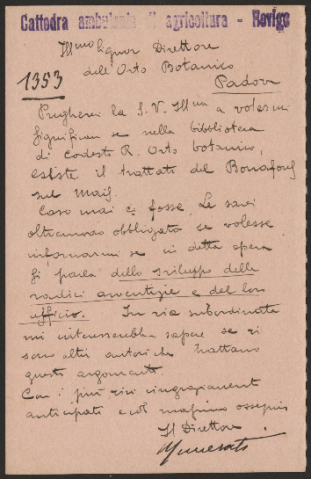 Cattedra ambulante di agricoltura - Rovigo
Illmo Signor Direttore
dell'Orto Botanico
Padova
1353
Pregherei la S. V. Illma a volermi
significare se nella bibblioteca
di codesto R. Orto botanico,
esiste il trattato del Bonafous
sul Mais.
Caso mai ci fosse, Le sarei
oltremodo obbligato se volesse
informarmi se in detta opera
si parla dello sviluppo delle
radici avventizie e del loro
ufficio. In via subordinata
mi interesserebbe sapere se vi
sono altri autori che trattano
questo argomento.
Con i più vivi ringraziamenti
anticipati e col massimo ossequio
Il Direttore